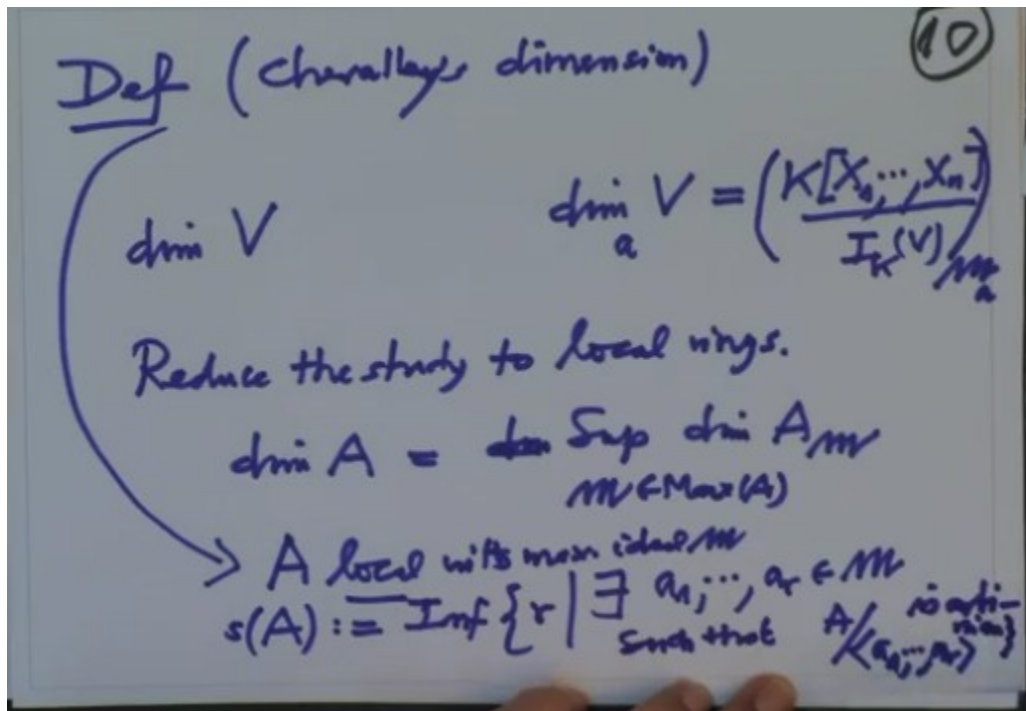 10
Def (Chevalleys dimension)
dim V dim_a V = (K[X_1,...,X_n] / I_K(V))_{𝔪_a}
Reduce the study to local rings.
dim A = Sup dim A_𝔪
𝔪 ∈ Max(A)
A local with max. ideal 𝔪
s(A) := Inf {r | ∃ a_1,...,a_r ∈ 𝔪
such that A/<a_1,...,a_r> is artinian}